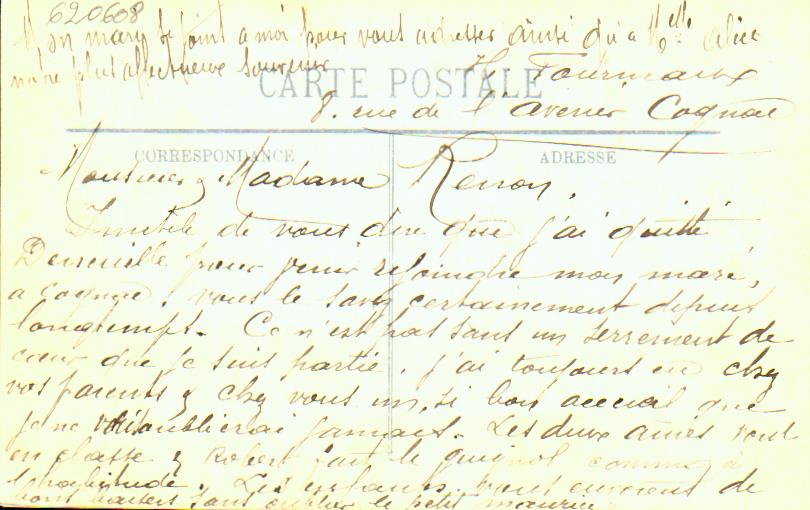 620608
Mon mari se joint a moi pour vous adresser ainsi qu'a Melle alice
notre plus affectueux souvenir
CARTE POSTALE
H. Fourmaux
8. rue de l'avenir Cognac
CORRESPONDANCE
ADRESSE
Monsieur & Madame
Inutile de vous dire que j'ai quitté
pour venir rejoindre mon mari,
a cognac, vous le savez certainement depuis
longtemps. Ce n'est pas sans un serrement de
cœur que je suis partie, j'ai toujours eu chez
vos parents & chez vous un si bon accueil que
je ne oublierai jamais. Les deux ainés vont
en classe & Robert fait le guignol comme à
l'habitude. Les enfants vous envoient de
bons baisers sans oublier le petit maurice